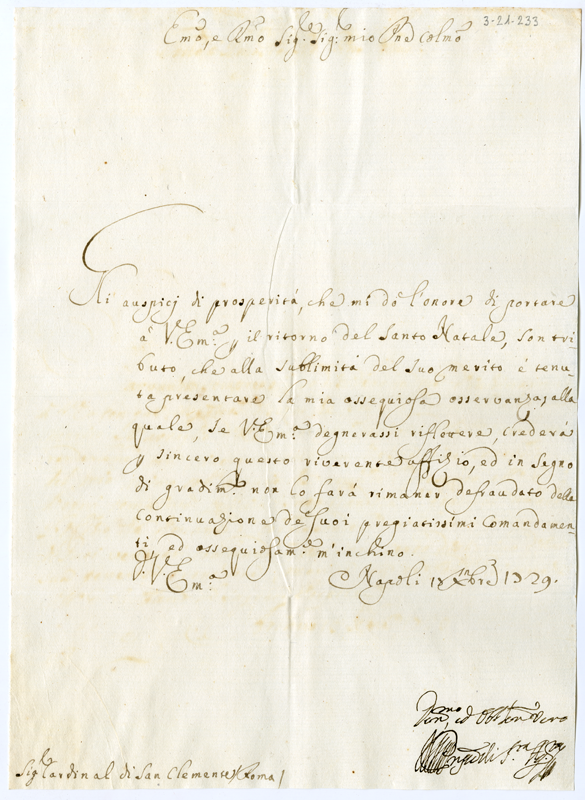 3-21-233
Emo, e Rmo Sigre Sigr: mio Pne Colmo
Gli auspicj di prosperità, che mi dò l'onore di portare
a V. Emã p il ritorno del Santo Natale, son tri-
buto, che alla sublimità del suo merito è tenu-
ta presentare la mia ossequiosa osservanza; alla
quale, se V. Emã degnerassi riflettere, crederà
p sincero questo riverente uffizio, ed in segno
di gradimto non lo farà rimaner defraudato della
continuazione de' suoi pregiatissimi comandamen-
ti, ed ossequiosamte m'inchino.
D. V. Emã Napoli 18 Xmbre 1729.
Devmo, ed Obbmo Servre vero
Sigr Cardinal di San Clemente Roma